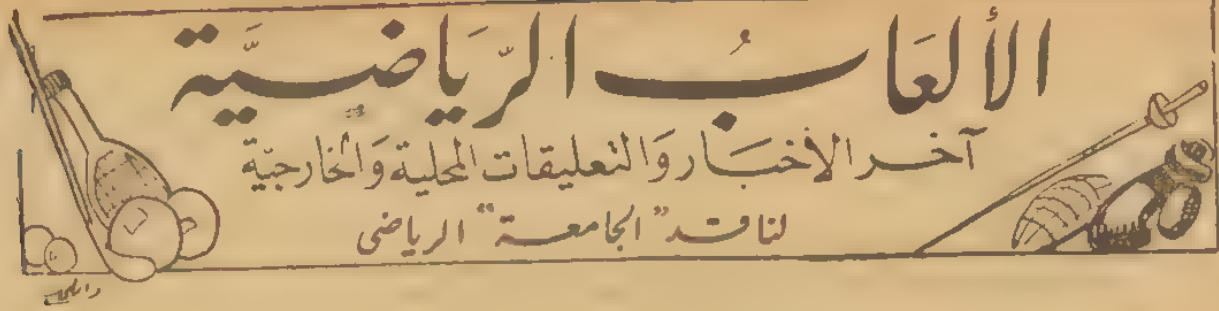 الألعَابُ الرّيَاضيَّة
آخر الأخبَار وَالتعليقات المحلية وَالخارجيّة
لناقد "الجامعة" الرياضى